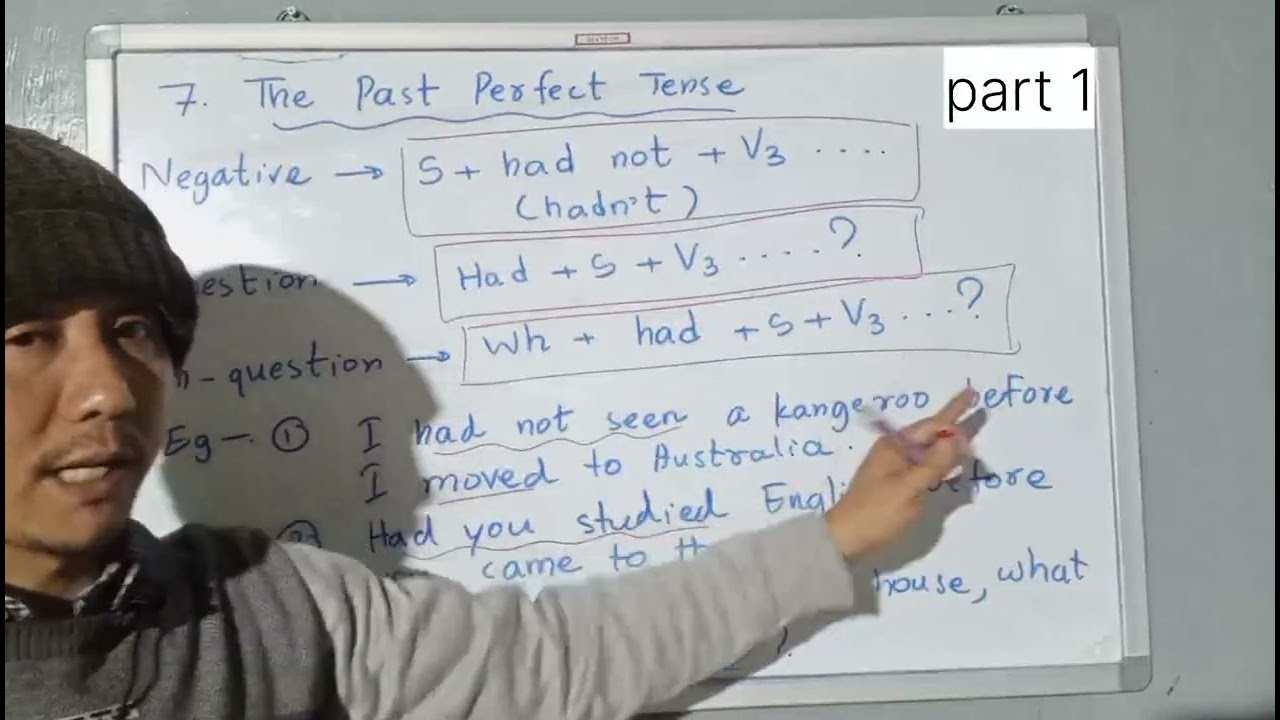 part 1
7. The Past Perfect Tense
Negative → S + had not + V3 ....
(hadn't)
→ Had + S + V3 ....?
-question → Wh + had + S + V3 ...?
Eg – ① I had not seen a kangeroo before
I moved to Australia.
② Had you studied before
came to
house, what
?